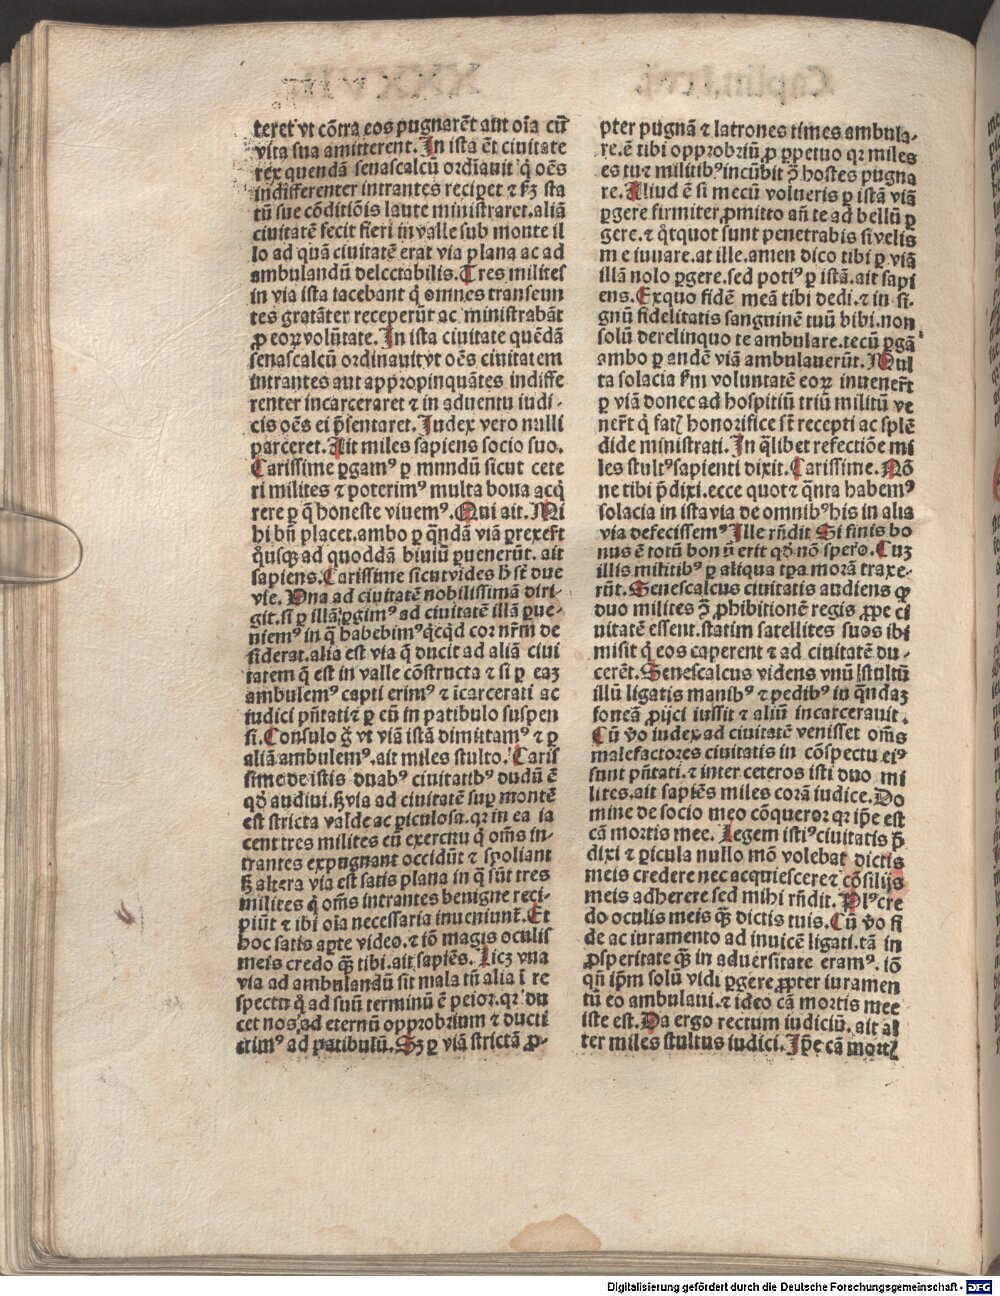 teret vt cōtra eos pugnarēt aut oīa cū
vita sua amitterent. In ista ēt ciuitate
rex quendā senascalcū ordīauit q̇ oēs
indifferenter intrantes recipet ⁊ ẜm sta
tū sue cōditiōis laute ministraret. aliā
ciuitatē fecit fieri in valle sub monte il
lo ad quā ciuitatē erat via plana ac ad
ambulandū delectabilis. Tres milites
in via ista iacebant q̇ omnes transeun
tes gratāter receperūt ac ministrabāt
ꝓ eoꝝ volūtate. In ista ciuitate quēdā
senascalcū ordinauit vt oēs ciuitatem
intrantes aut appropinquātes indiffe
renter incarceraret ⁊ in aduentu iudi-
cis oēs ei p̄sentaret. Iudex vero nulli
parceret. Ait miles sapiens socio suo.
Carissime ꝑgamꝰ ꝑ mundū sicut cete
ri milites ⁊ poterimꝰ multa bona acq̇
rere ꝑ q̄ honeste viuemꝰ. Qui ait. Mi
hi bn̄ placet. ambo ꝑ q̄ndā viā ꝑrexert̄
q̇usqꝫ ad quoddā biuiū ꝑuenerūt. ait
sapiens. Carissime sicut vides h̄ st̄ due
vie. Vna ad ciuitatē nobilissimā diri-
git. si ꝑ illā ꝑgimꝰ ad ciuitatē illā ꝑue-
niemꝰ in q̄ habebimꝰ q̇cq̇d cor nr̄m de
siderat. alia est via q̄ ducit ad aliā ciui
tatem q̄ est in valle cōstructa ⁊ si ꝑ eaꝫ
ambulemꝰ capti erimꝰ ⁊ īcarcerati ac
iudici pn̄tati ⁊ ꝑ eū in patibulo suspen
si. Consulo g̊ vt viā istā dimittamꝰ ⁊ ꝑ
aliā ambulemꝰ. ait miles stulto. Caris
sime de istis duabꝰ ciuitatibꝰ dudū ē
qḋ audiui. ẜꝫ via ad ciuitatē suꝑ montē
est stricta valde ac ꝑiculosa. qr in ea ia
cent tres milites cū exercitu q̇ om̄s in-
trantes expugnant occidūt ⁊ spoliant
ẜꝫ altera via est satis plana in q̄ sūt tres
milites q̇ om̄s intrantes benigne reci-
piūt ⁊ ibi oīa necessaria inueniunt̄. Et
hoc satis aꝑte video. ⁊ iō magis oculis
meis credo q̄ꝫ tibi. ait sapiēs. Licꝫ vna
via ad ambulandū sit mala tn̄ alia ī re
spectu q̇ ad suū terminū ē peior. qr du
cet nos ad eternū opprobrium ⁊ ducti
erimꝰ ad patibulū. Sꝫ ꝑ viā strictā ꝓ-
pter pugnā ⁊ latrones times ambula-
re. ē tibi opprobriū ꝓ ꝑpetuo qr miles
es tu ⁊ militibꝰ incūbit ꝯ̄ hostes pugna
re. Aliud ē si mecū volueris ꝑ istā viā
ꝑgere firmiter ꝓmitto an̄ te ad bellū ꝑ
gere. ⁊ q̇tquot sunt penetrabis si velis
me iuuare. at ille. amen dico tibi ꝑ viā
illā nolo ꝑgere. sed potiꝰ ꝑ istā. ait sapi
ens. Exquo fidē meā tibi dedi. ⁊ in si-
gnū fidelitatis sanguinē tuū bibi. non
solū derelinquo te ambulare. tecū ꝑgā
ambo ꝑ andē viā ambulauerūt. Mul
ta solacia ẜm voluntatē eoꝝ inuenert̄
ꝑ viā donec ad hospitiū triū militū ve
nert̄ q̇ satꝭ honorifice st̄ recepti ac splē
dide ministrati. In q̄libet refectiōe mi
les stultꝰ sapienti dixit. Carissime. Nō
ne tibi p̄dixi. ecce quot ⁊ q̄nta habemꝰ
solacia in ista via de omnibꝰ his in alia
via defecissemꝰ Ille rn̄dit Si finis bo
nus ē totū bonū erit qḋ nō spero. Cuꝫ
illis militibꝰ ꝑ aliqua tꝑa morā traxe-
rūt. Senescalcus ciuitatis audiens ꝙ
duo milites ꝯ̄ ꝓhibitionē regis ꝓpe ci
uitatē essent. statim satellites suos ibi
misit q̇ eos caperent ⁊ ad ciuitatē du-
cerēt. Senescalcus videns vnū stultū
illū ligatis manibꝰ ⁊ pedibꝰ in q̄ndaꝫ
foueā ꝓijci iussit ⁊ aliū incarcerauit.
Cū v̊o iudex ad ciuitatē venisset om̄s
malefactores ciuitatis in cōspectu eiꝰ
sunt pn̄tati. ⁊ inter ceteros isti duo mi
lites. ait sapiēs miles corā iudice. Do
mine de socio meo cōqueror qr ip̄e est
cā mortis mee. Legem istiꝰ ciuitatis p̄
dixi ⁊ ꝑicula nullo mō volebat dictis
meis credere nec acquiescere ⁊ cōsilijs
meis adherere sed mihi rn̄dit. Plꝰ cre
do oculis meis q̄ꝫ dictis tuis. Cū v̊o fi
de ac iuramento ad inuicē ligati. tā in
ꝓsperitate q̄ꝫ in aduersitate eramꝰ. iō
qn̄ ip̄m solū vidi ꝑgere ꝓpter iuramen
tū eo ambulaui. ⁊ ideo cā mortis mee
iste est. Da ergo rectum iudiciū. ait al
ter miles stultus iudici. Ip̄e cā mortꝭ
Digitalisierung gefördert durch die Deutsche Forschungsgemeinschaft - DFG